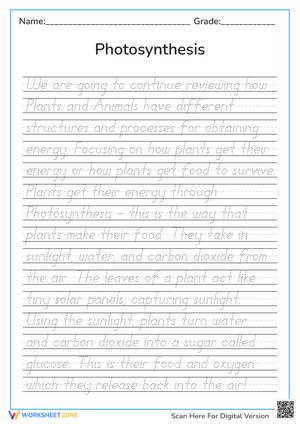 Name:________________________________ Grade:____________
Photosynthesis
We are going to continue reviewing how
Plants and Animals have different
structures and processes for obtaining
energy. Focusing on how plants get their
energy or how plants get food to survive.
Plants get their energy through
Photosynthesis - this is the way that
plants make their food. They take in
sunlight, water, and carbon dioxide from
the air. The leaves of a plant act like
tiny solar panels, capturing sunlight.
Using the sunlight, plants turn water
and carbon dioxide into a sugar called
glucose. This is their food and oxygen
which they release back into the air!
WORKSHEETZONE
Scan Here For Digital Version